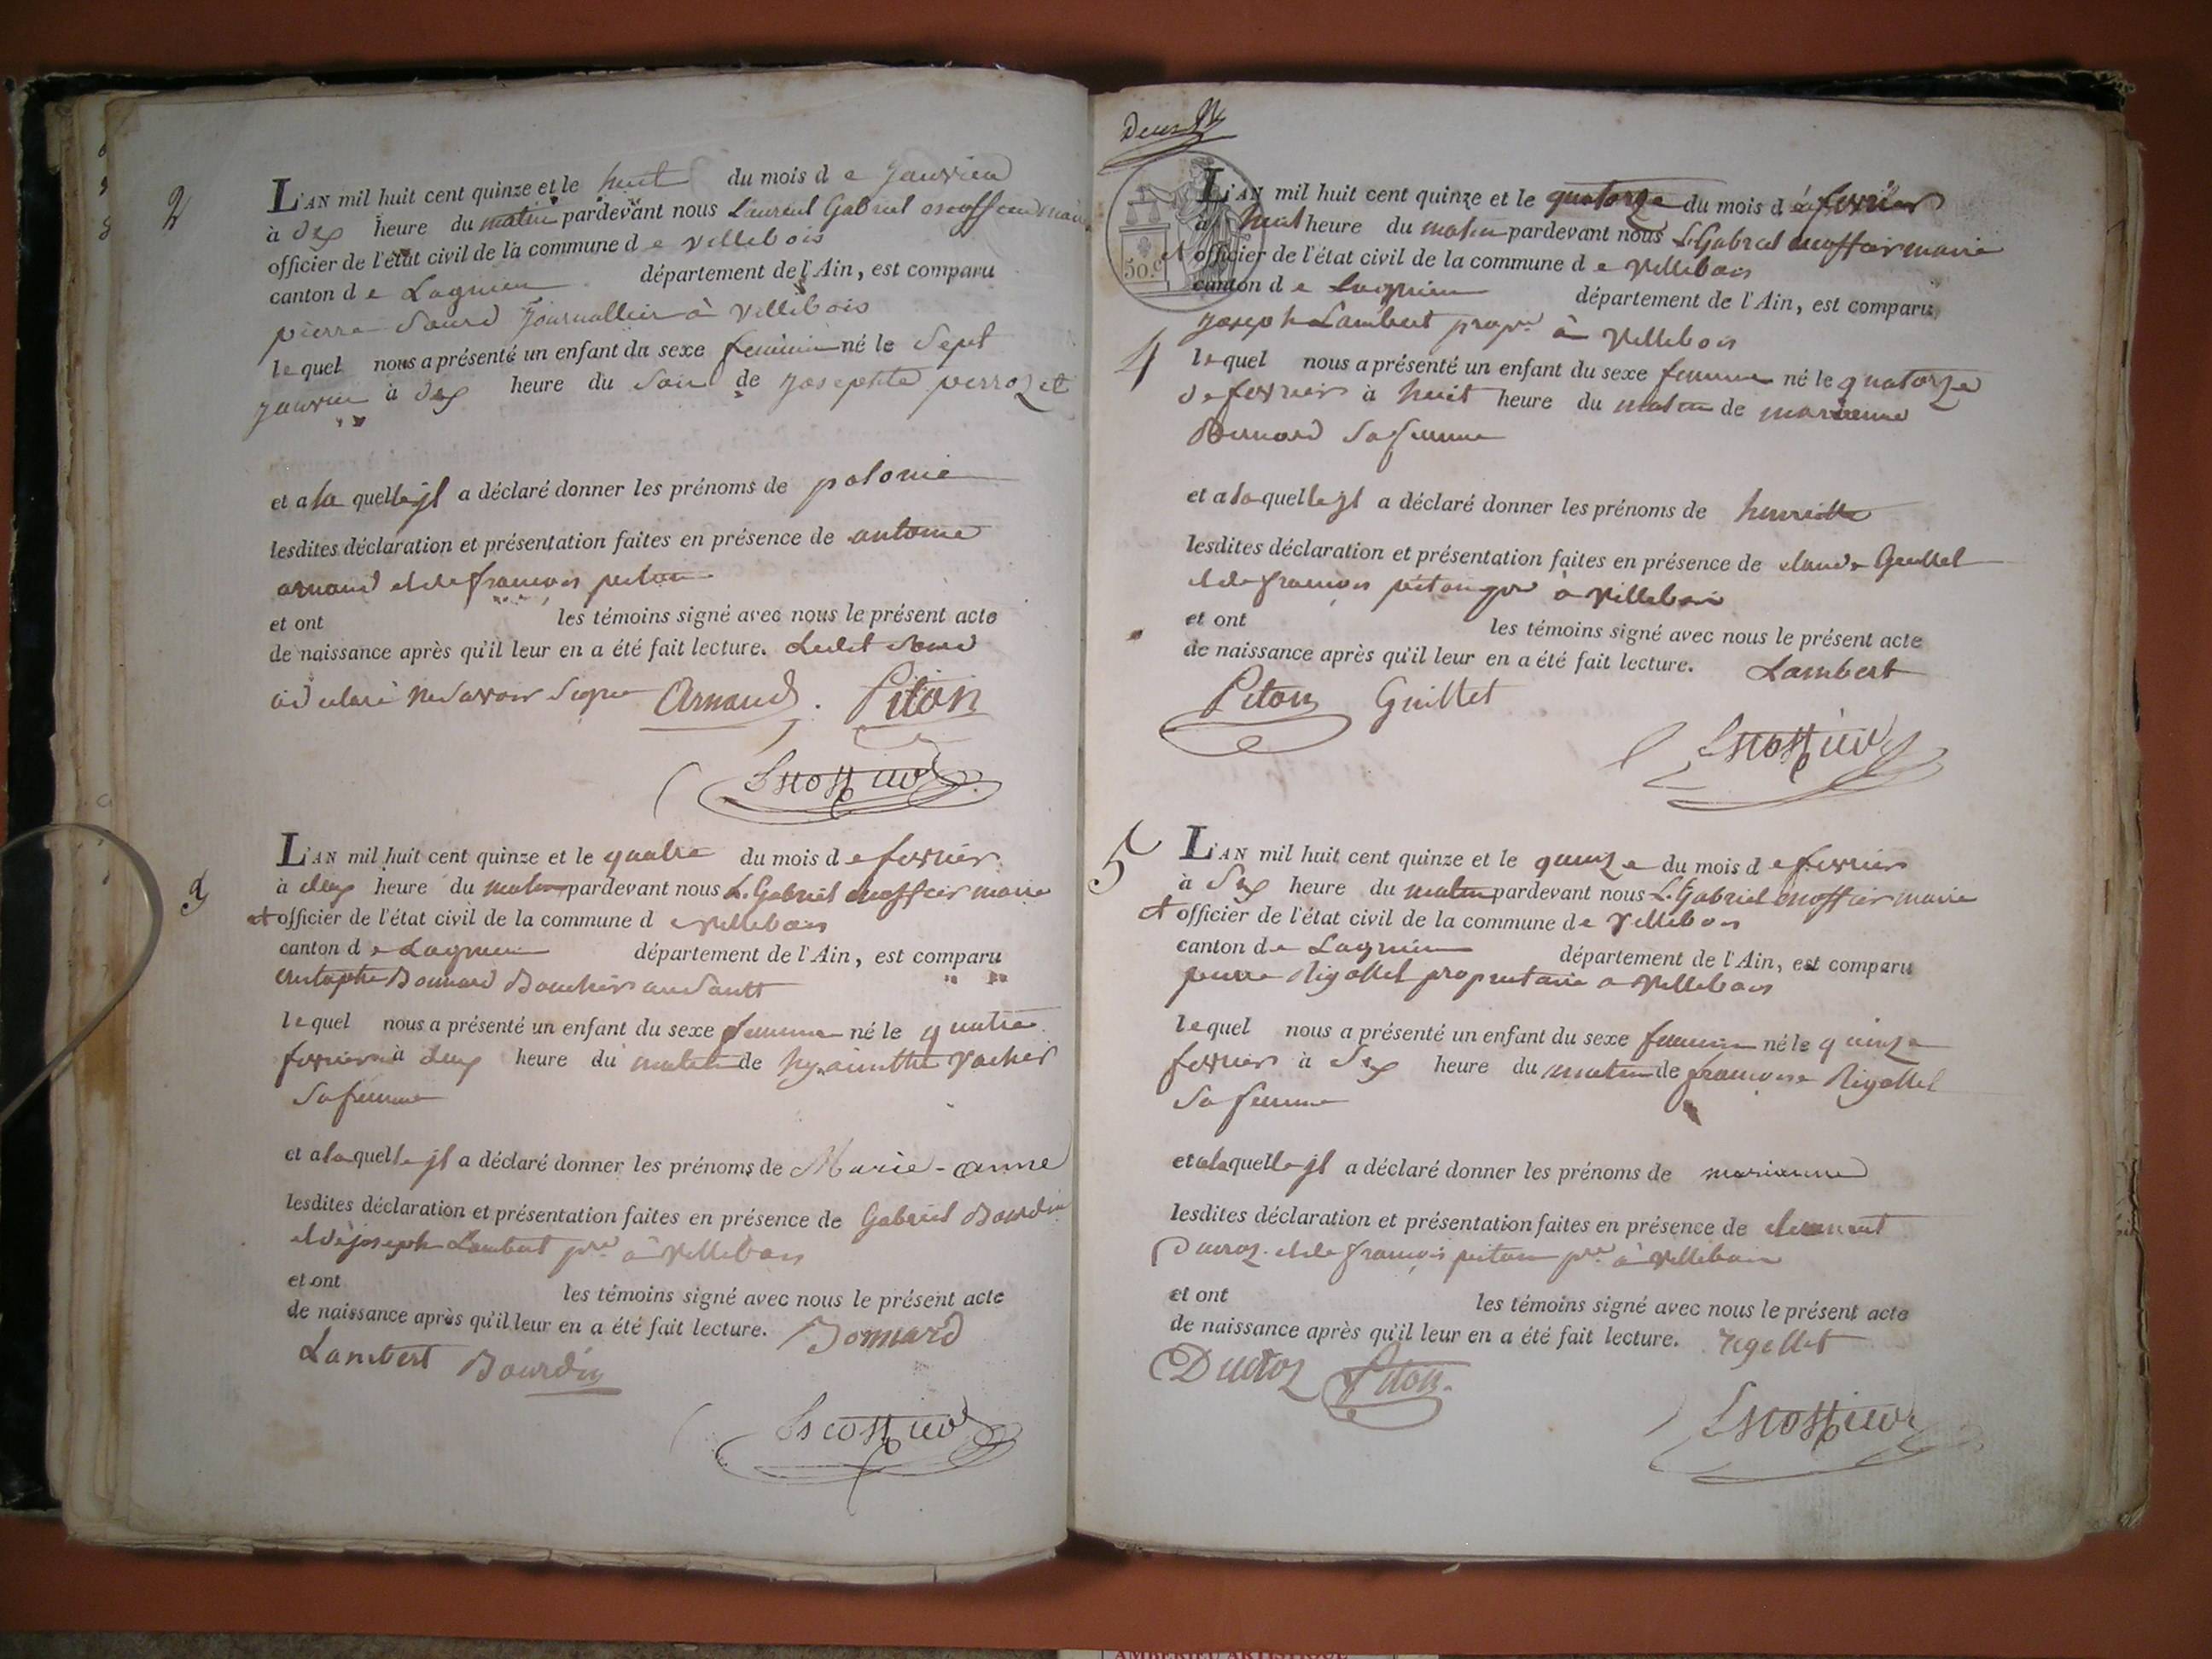 2
L'AN mil huit cent quinze et le huit du mois de janvier
à dix heure du matin pardevant nous Laurent Gabriel
officier de l'état civil de la commune de villebois
canton de Lagnieu département de l'Ain, est comparu
pierre Sourd journallier à villebois
lequel nous a présenté un enfant du sexe feminin né le Sept
janvier à dix heure du Soir de josephte perrozet
et a la quelle jl a déclaré donner les prénoms de polonie
lesdites déclaration et présentation faites en présence de antoine
arnaud et de françois piton
et ont les témoins signé avec nous le présent acte
de naissance après qu'il leur en a été fait lecture. Ledit Sourd
a déclaré ne Savoir Signer Arnaud. Piton
Escossieu
3
L'AN mil huit cent quinze et le quatre du mois de fevrier
à deux heure du matin pardevant nous L. Gabriel maire
et officier de l'état civil de la commune de villebois
canton de Lagnieu département de l'Ain, est comparu
Bonnard Boucher au Sault
lequel nous a présenté un enfant du sexe femme né le quatre
fevrier à deux heure du matin de hyacinthe vacher
Sa femme
et a la quelle jl a déclaré donner les prénoms de Marie-anne
lesdites déclaration et présentation faites en présence de Gabriel Bourdin
et de joseph Lambert pre à villebois
et ont les témoins signé avec nous le présent acte
de naissance après qu'il leur en a été fait lecture. Bonnard
Lambert Bourdin
Escossieu
Deux
50.c
L'AN mil huit cent quinze et le quatorze du mois de fevrier
à huit heure du matin pardevant nous L. Gabriel maire
et officier de l'état civil de la commune de villebois
canton de Lagnieu département de l'Ain, est comparu
joseph Lambert propre à villebois
4
lequel nous a présenté un enfant du sexe femme né le quatorze
de fevrier à huit heure du matin de marianne
Bernard Sa femme
et a la quelle jl a déclaré donner les prénoms de henriette
lesdites déclaration et présentation faites en présence de claude Guillet
et de françois piton à villebois
et ont les témoins signé avec nous le présent acte
de naissance après qu'il leur en a été fait lecture. Lambert
Piton Guillet
Escossieu
5
L'AN mil huit cent quinze et le quinze du mois de fevrier
à dix heure du matin pardevant nous L. Gabriel maire
et officier de l'état civil de la commune de villebois
canton de Lagnieu département de l'Ain, est comparu
pierre Rigollet proprietaire a villebois
lequel nous a présenté un enfant du sexe feminin né le quinze
fevrier à dix heure du matin de françoise Rigollet
Sa femme
et a la quelle jl a déclaré donner les prénoms de marianne
lesdites déclaration et présentation faites en présence de clement
Ducroz et de françois piton pre à villebois
et ont les témoins signé avec nous le présent acte
de naissance après qu'il leur en a été fait lecture. rigollet
Ducroz Piton
Escossieu